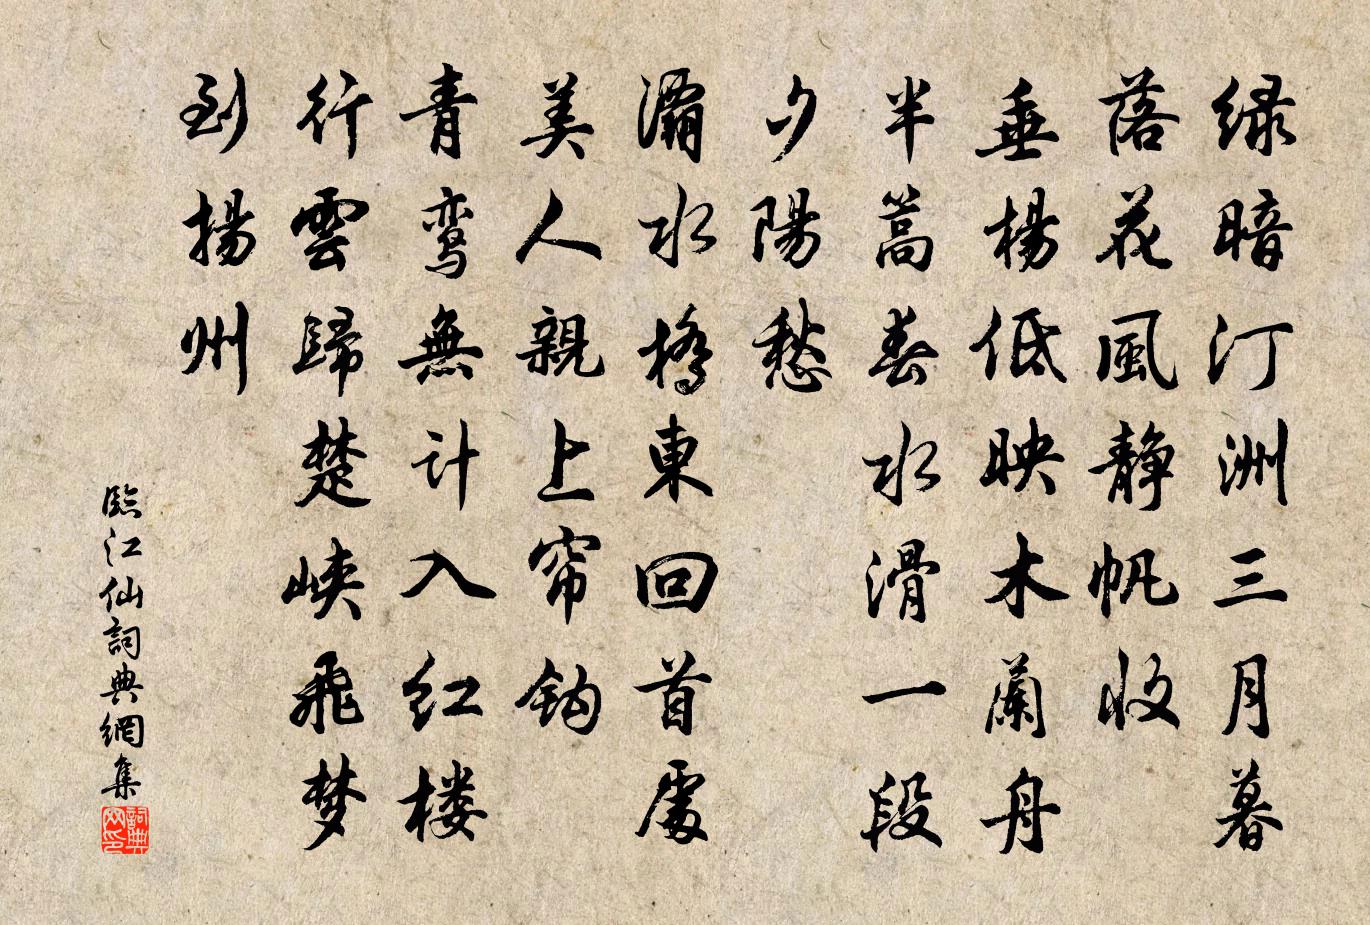 绿暗汀洲三月暮
落花風静帆收
垂楊低映木蘭舟
半篙春水滑一段
夕陽愁
灞水橋東回首處
美人親上帘鈎
青鸾無计入红楼
行雲歸楚峡飛梦
到揚州
臨江仙詞典網集
詞典网印